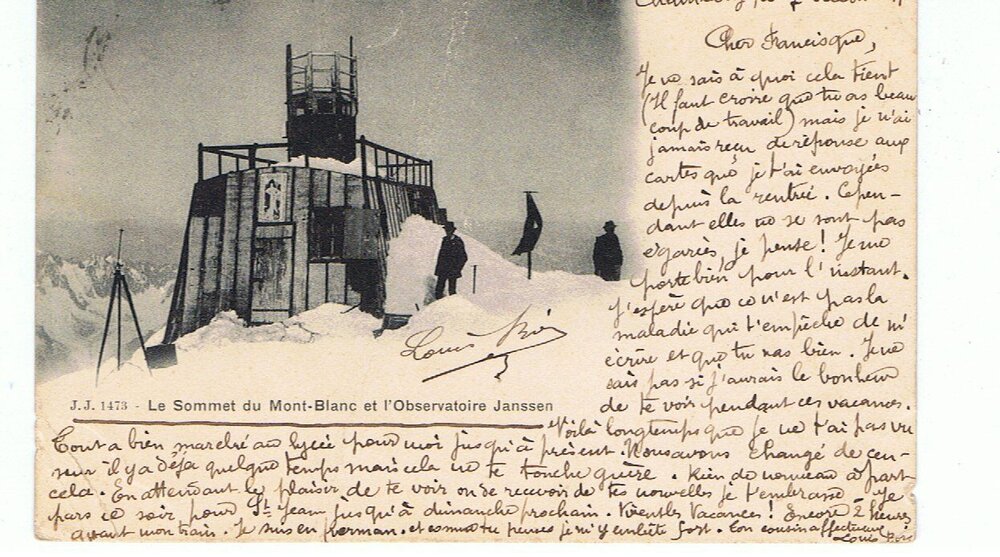 Cher Francisque,
Je ne sais à quoi cela tient
(Il faut croire que tu as beau
coup de travail) mais je n'ai
jamais reçu de réponse aux
cartes que je t'ai envoyées
depuis la rentrée. Cepen-
dant elles ne se sont pas
égarées, je pense! Je me
porte bien pour l'instant.
J'espère que ce n'est pas la
maladie qui t'empêche de m'
écrire et que tu vas bien. Je ne
sais pas si j'aurais le bonheur
de te voir pendant ces vacances.
Voilà longtemps que je ne t'ai pas vu
Louis
J.J. 1473 - Le Sommet du Mont-Blanc et l'Observatoire Janssen
Tout a bien marché au lycée pour moi jusqu'à présent. Nous avons changé de cen-
seur il y a déja quelque temps mais cela ne te touche guère. Rien de nouveau à part
cela. En attendant le plaisir de te voir ou de recevoir de tes nouvelles je t'embrasse. Je
pars ce soir pour St Jean jusqu'à dimanche prochain. Vivent les Vacances! Encore 2 heures
avant mon train. Je suis en perman. et comme tu penses je m'y embête fort. Ton cousin affectueux
Louis